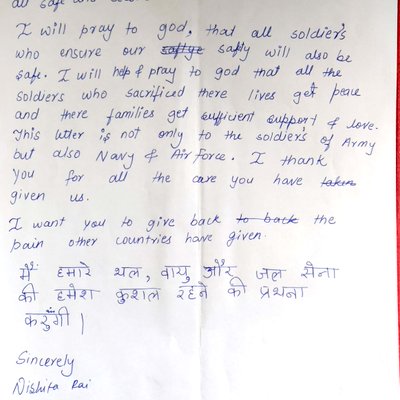 all safe and
I will pray to god, that all soldier's
who ensure our safty will also be
safe. I will help & pray to god that all the
soldiers who sacrificed there lives get peace
and there families get sufficient support & love.
This letter is not only to the soldier's of Army
but also Navy & Air Force. I thank
You for all the care you have taken
given us.
I want you to give back to back the
pain other countries have given.
मैं हमारे थल, वायु और जल सेना
की हमेश कुशल रहने की प्रथना
करुँगी |
Sincerely
Nishita Rai